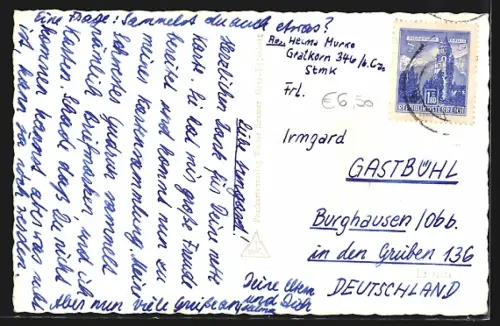 Eine Frage: Sammelst du auch etwas?
Liebe Irmgard!
Herzlichen Dank für Deine nette
Karte. Sie hat mir große Freude
bereitet und kommt nun zu
meiner Kartensammlung. Meine
Schwester Gudrun sammelt
nämlich Briefmarken und ich
Karten. Schade, daß Du nicht
kommen kannst aber was nicht
ist kann ja noch werden.
Aber nun viele Grüße an
Deine Eltern
und Dich
Helma
Abs. Helma Murko
Gratkorn 346
Stmk
€6,50
REPUBLIK ÖSTERREICH
Frl.
Irmgard
GASTBÜHL
Burghausen/Obb.
in den Grüben 136
DEUTSCHLAND